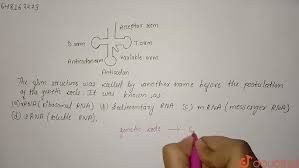 648263029
Acceptor arm
D arm
T arm
Anticodon arm
Variable arm
Anticodon
The given structure was called by another name before the postulation
of the genetic code. It was known as
(a) rRNA (ribosomal RNA) (b) Sedimentary RNA (c) mRNA (messenger RNA)
(d) sRNA (soluble RNA).
genetic code →
doubtnut